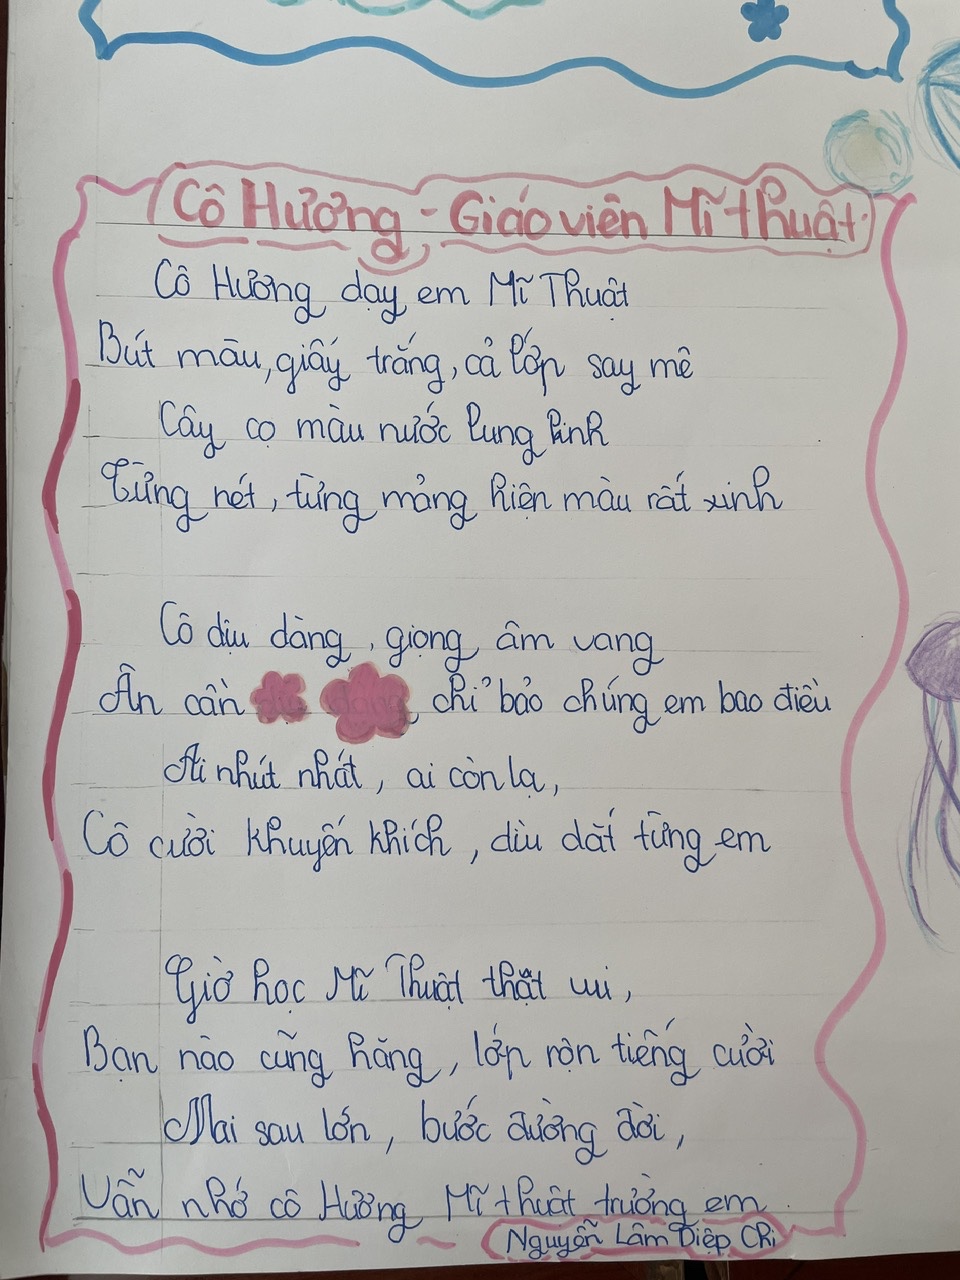 Cô Hương - Giáo viên Mĩ thuật.
Cô Hương dạy em Mĩ Thuật
Bút màu, giấy trắng, cả lớp say mê
Cây cọ màu nước lung linh
Từng nét, từng mảng hiện màu rất xinh
Cô dịu dàng, giọng âm vang
Ân cần chỉ bảo chúng em bao điều
Ai nhút nhát, ai còn lạ,
Cô cười khuyến khích, dìu dắt từng em
Giờ học Mĩ Thuật thật vui,
Bạn nào cũng hăng, lớp rộn tiếng cười
Mai sau lớn, bước đường đời,
Vẫn nhớ cô Hương Mĩ thuật trường em.
Nguyễn Lâm Diệp Chi